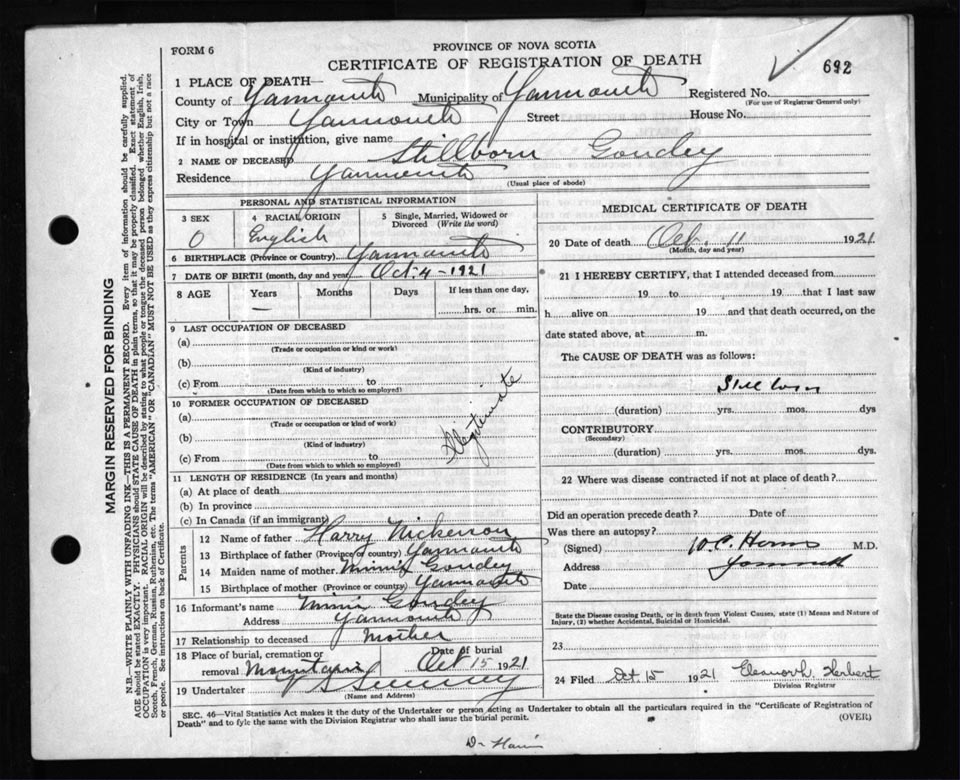 FORM 6
PROVINCE OF NOVA SCOTIA
CERTIFICATE OF REGISTRATION OF DEATH
692
1 PLACE OF DEATH—
County of Yarmouth Municipality of Yarmouth Registered No.
(For use of Registrar General only)
City or Town Yarmouth Street House No.
If in hospital or institution, give name
2 NAME OF DECEASED Stillborn Goudey
Residence Yarmouth
(Usual place of abode)
PERSONAL AND STATISTICAL INFORMATION
3 SEX
4 RACIAL ORIGIN
5 Single, Married, Widowed or
Divorced (Write the word)
O English
6 BIRTHPLACE (Province or Country) Yarmouth
7 DATE OF BIRTH (month, day and year) Oct-4-1921
8 AGE Years Months Days If less than one day,
— hrs. or min.
9 LAST OCCUPATION OF DECEASED
(a)
(Trade or occupation or kind or work)
(b)
(Kind of industry)
(c) From to
(Date from which to which so employed)
10 FORMER OCCUPATION OF DECEASED
(a)
(Trade or occupation or kind of work)
(b)
(Kind of industry)
(c) From to
(Date from which to which so employed)
Illegitimate
11 LENGTH OF RESIDENCE (In years and months)
(a) At place of death
(b) In province
(c) In Canada (if an immigrant)
Parents
12 Name of father Harry Nickerson
13 Birthplace of father (Province or country) Yarmouth
14 Maiden name of mother Minnie Goudey
15 Birthplace of mother (Province or country) Yarmouth
16 Informant's name Minnie Goudey
Address Yarmouth
17 Relationship to deceased Mother
18 Place of burial, cremation or
removal Mountain
Date of burial
Oct 15 1921
19 Undertaker Sweeney
(Name and Address)
MEDICAL CERTIFICATE OF DEATH
20 Date of death Oct. 11 1921
(Month, day and year)
21 I HEREBY CERTIFY, that I attended deceased from
19 to 19 that I last saw
h alive on 19 and that death occurred, on the
date stated above, at m.
The CAUSE OF DEATH was as follows:
Still born
(duration) yrs. mos. dys
CONTRIBUTORY
(Secondary)
(duration) yrs. mos. dys.
22 Where was disease contracted if not at place of death?
Did an operation precede death? Date of
Was there an autopsy?
(Signed) M.D.
Address Yarmouth
Date
State the Disease causing Death, or in death from Violent Causes, state (1) Means and Nature of
Injury, (2) whether Accidental, Suicidal or Homicidal.
23
24 Filed Oct 15 1921 Herbert
Division Registrar
SEC. 46—Vital Statistics Act makes it the duty of the Undertaker or person acting as Undertaker to obtain all the particulars required in the "Certificate of Registration of
Death" and to fyle the same with the Division Registrar who shall issue the burial permit. (OVER)
MARGIN RESERVED FOR BINDING
N.B.—WRITE PLAINLY WITH UNFADING INK—THIS IS A PERMANENT RECORD. Every item of information should be carefully supplied.
AGE should be stated EXACTLY. PHYSICIANS should STATE CAUSE OF DEATH in plain terms, so that it may be properly classified. Exact statement of
OCCUPATION is very important. RACIAL ORIGIN will be described by stating to what people or tongue the deceased person belonged whether English, Irish,
Scotch, French, German, Russian, Ruthenian, etc. The terms "AMERICAN" OR "CANADIAN" MUST NOT BE USED as they express citizenship but not a race
or people. See instructions on back of Certificate.